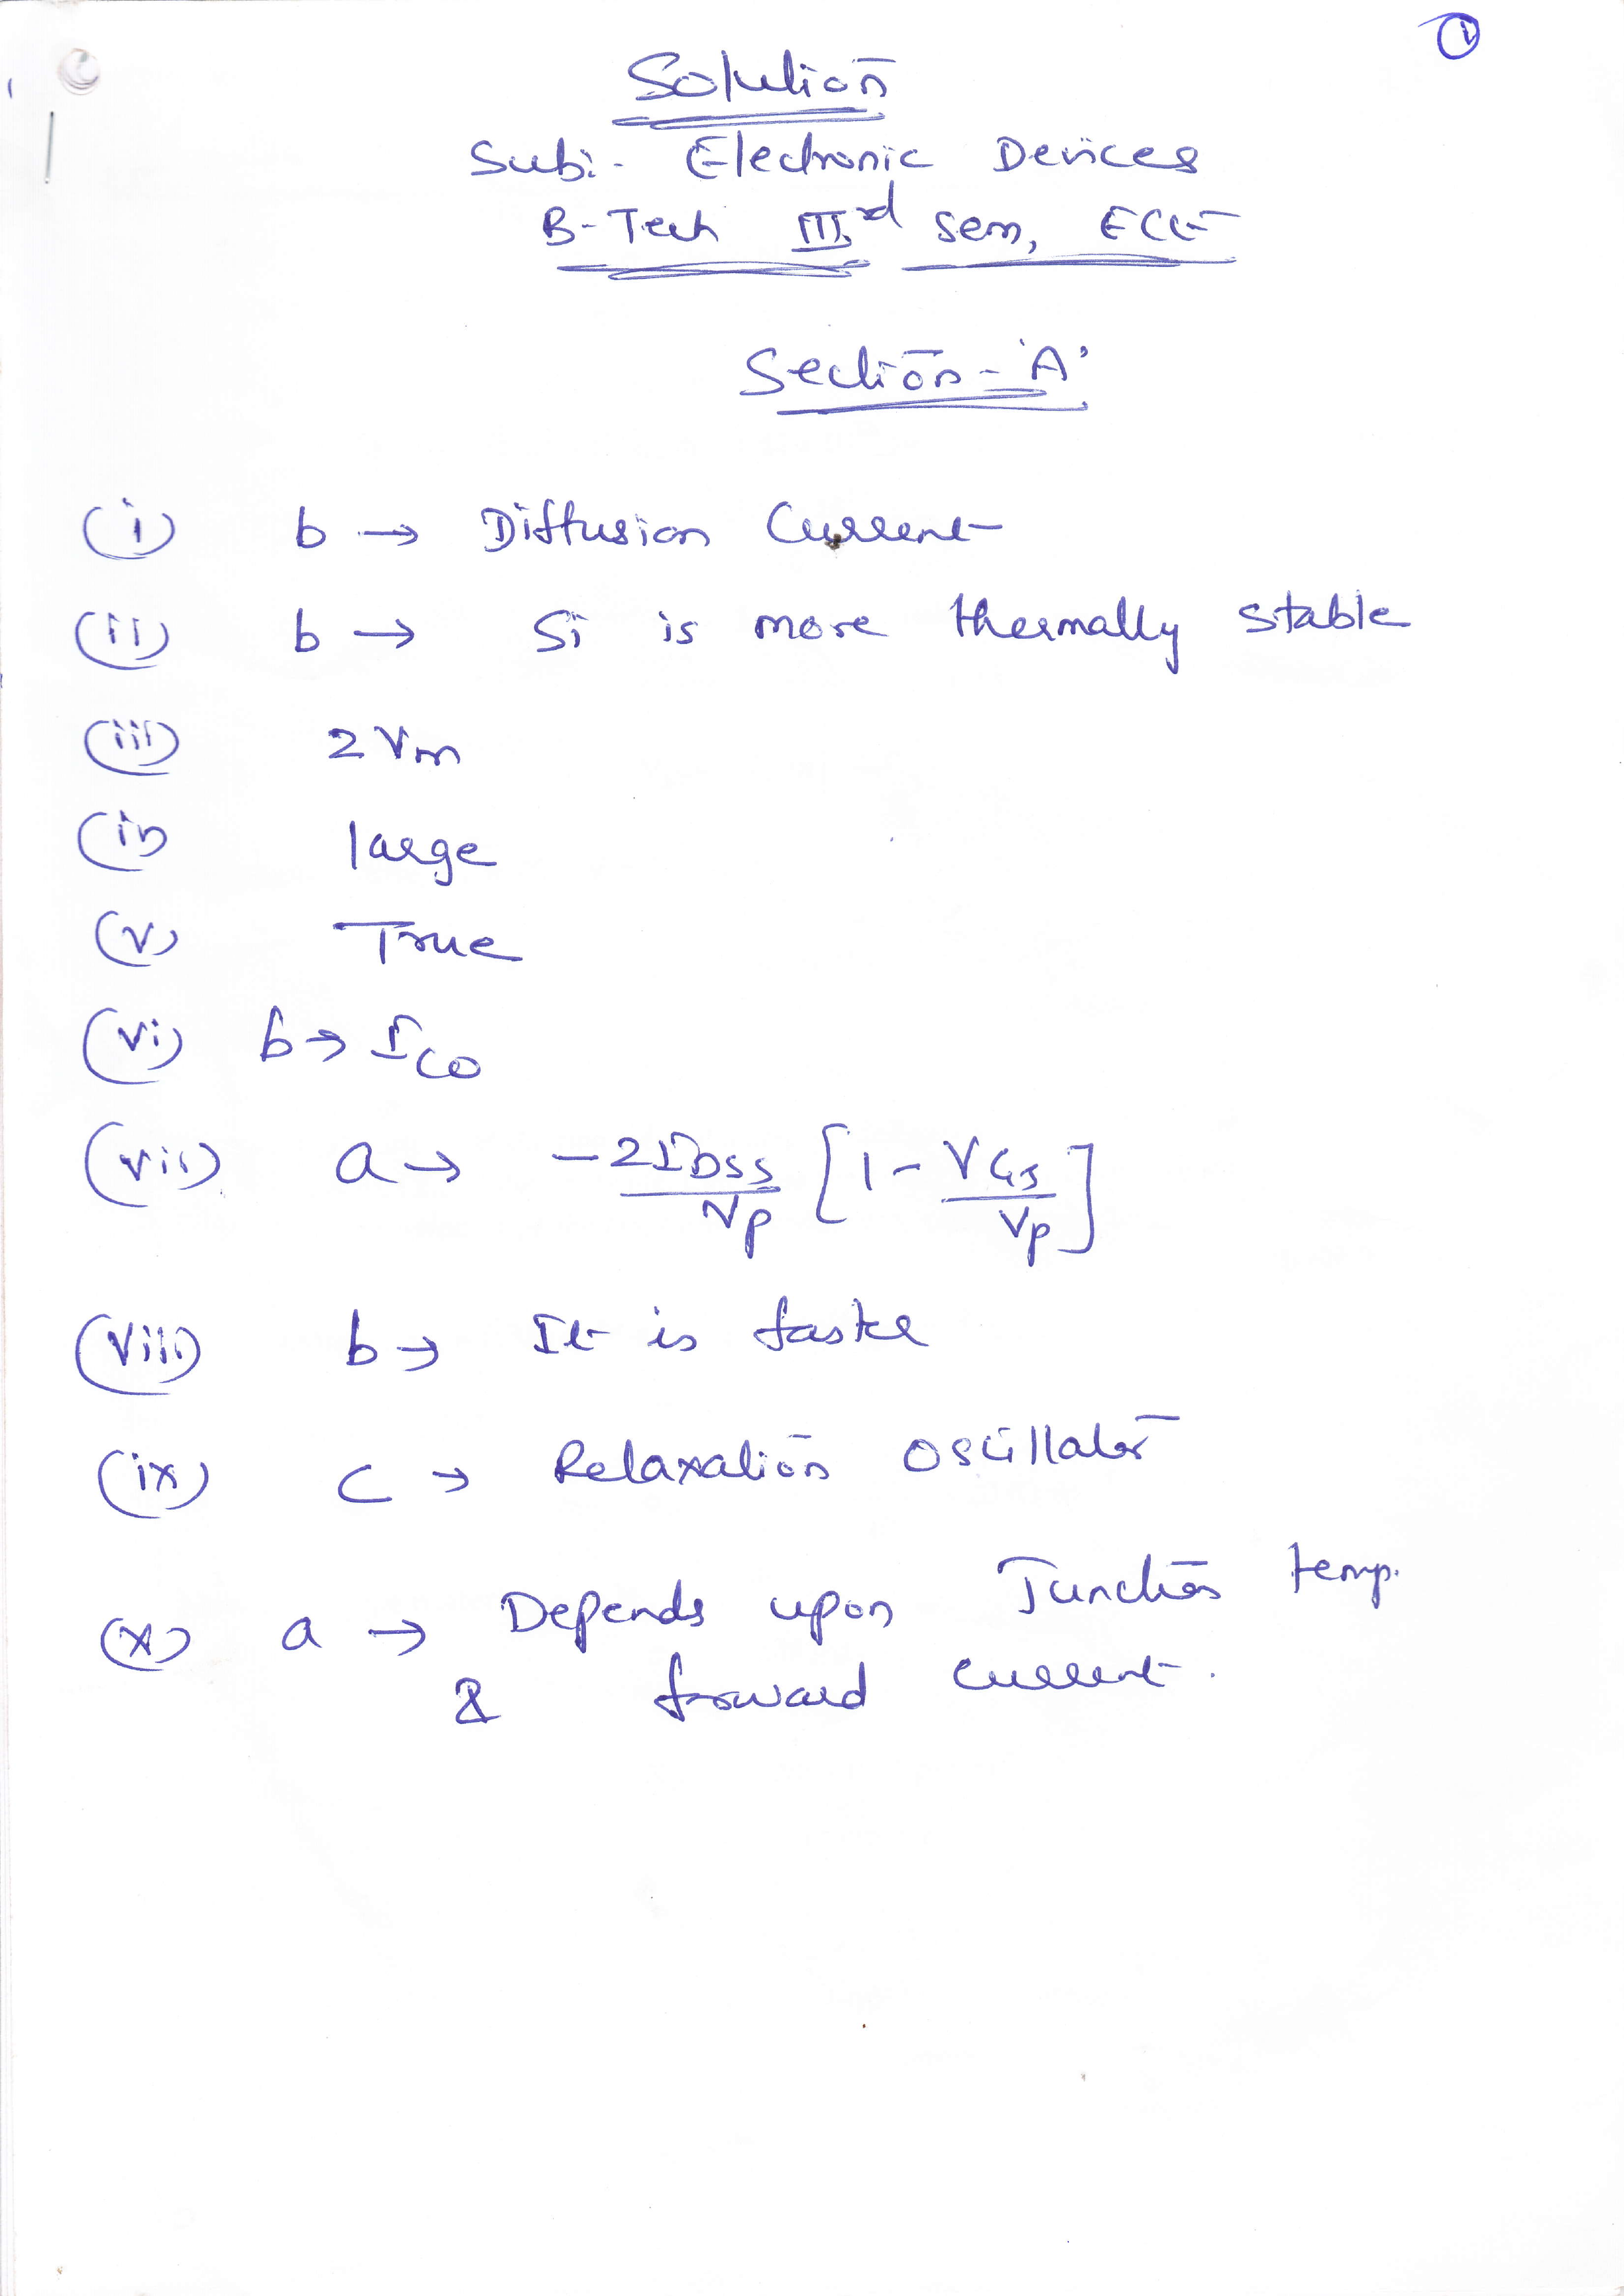 1
Solution
Sub:- Electronic Devices
B-Tech IIIrd Sem, ECE
Section-'A'
(i) b → Diffusion Current
(ii) b → Si is more thermally stable
(iii) 2Vm
(iv) large
(v) True
(vi) b → ICO
(vii) a → -2IDSS/Vp [1 - VGS/Vp]
(viii) b → It is faster
(ix) c → Relaxation Oscillator
(x) a → Depends upon Junction temp.
& forward current.